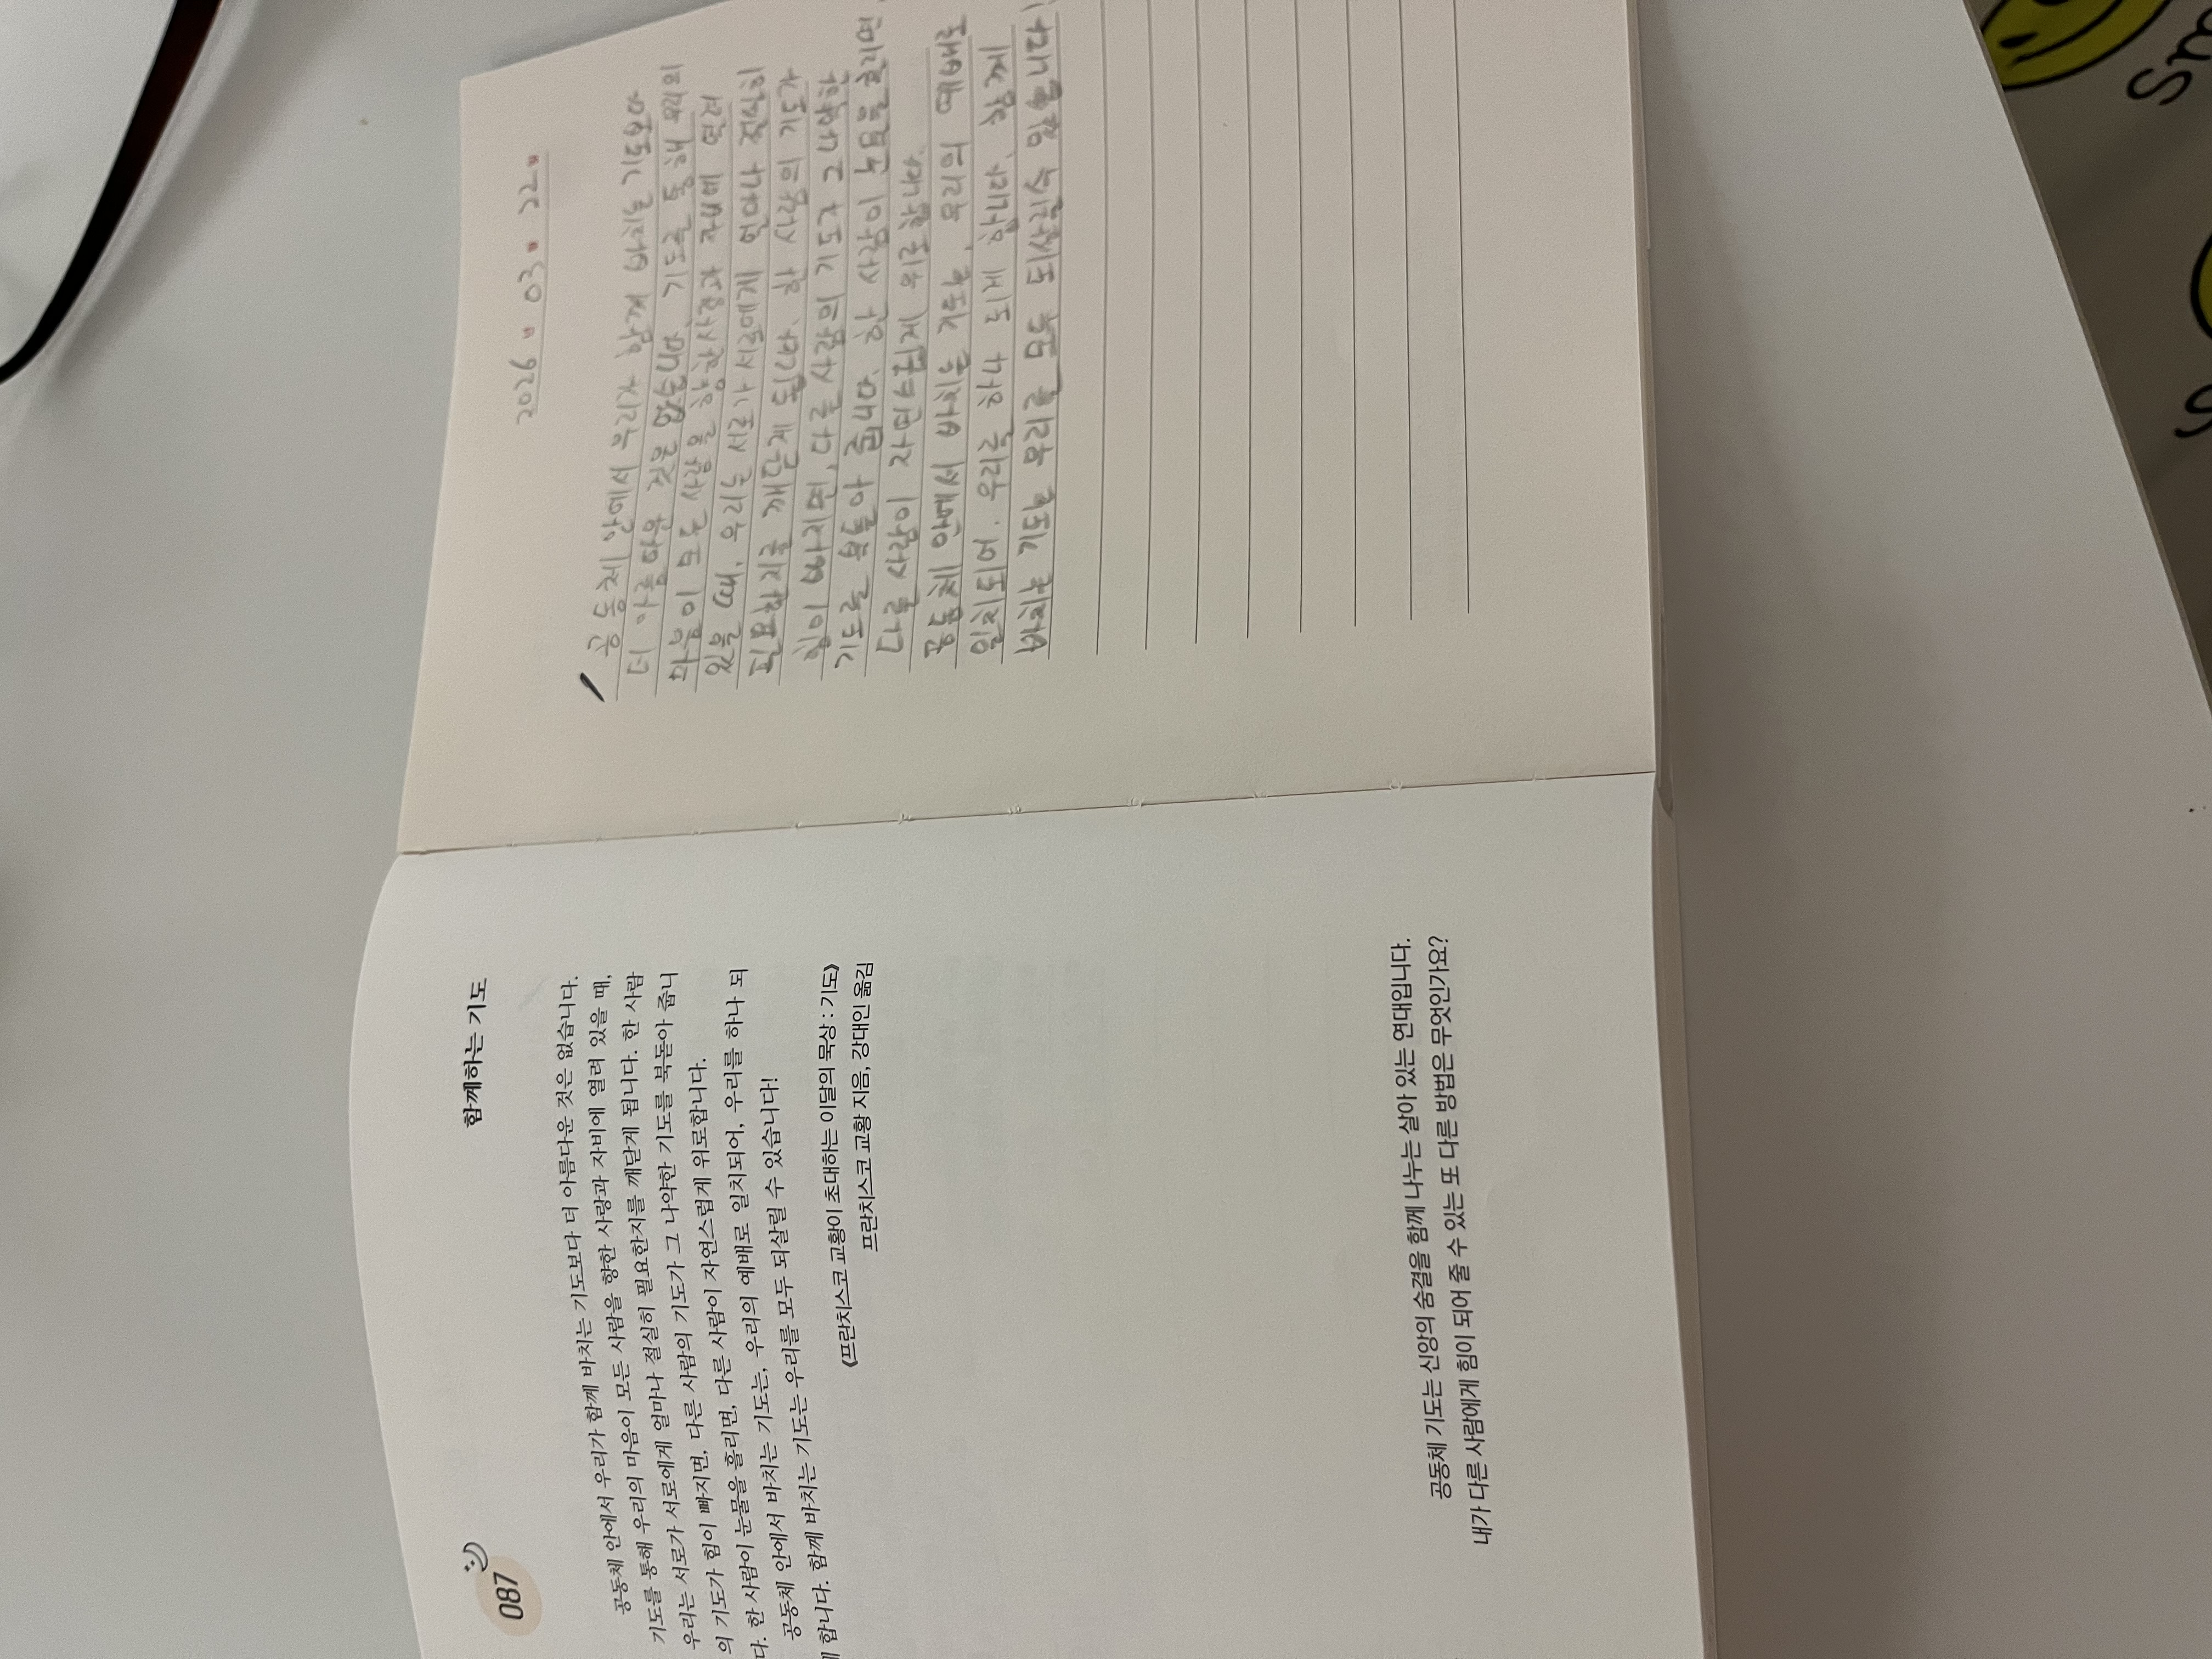 087
함께하는 기도
공동체 안에서 우리가 함께 바치는 기도보다 더 아름다운 것은 없습니다.
기도를 통해 우리의 마음이 모든 사람을 향한 사랑과 자비에 열려 있을 때,
우리는 서로가 서로에게 얼마나 절실히 필요한지를 깨닫게 됩니다. 한 사람
의 기도가 힘이 빠지면, 다른 사람의 기도가 그 나약한 기도를 북돋아 줍니
다. 한 사람이 눈물을 흘리면, 다른 사람이 자연스럽게 위로합니다.
공동체 안에서 바치는 기도는, 우리의 예배로 일치되어, 우리를 하나 되
게 합니다. 함께 바치는 기도는 우리를 모두 되살릴 수 있습니다!
《프란치스코 교황이 초대하는 이달의 묵상 : 기도》
프란치스코 교황 지음, 강대인 옮김
공동체 기도는 신앙의 숨결을 함께 나누는 살아 있는 연대입니다.
내가 다른 사람에게 힘이 되어 줄 수 있는 또 다른 방법은 무엇인가요?
2026 . 03 . 22 .
공동체 안에서 우리가 함께 바치는 기도보다
더 아름다운 것은 없습니다. 기도를 통해 우리의
마음이 모든 사람을 향한 사랑과 자비에 열려
있을 때, 우리는 서로가 서로에게 얼마나 절실히
필요한지를 깨닫게 됩니다. 한 사람의 기도가
힘이 빠지면, 다른 사람의 기도가 그 나약한
기도를 북돋아 줍니다. 한 사람이 눈물을 흘리면,
다른 사람이 자연스럽게 위로합니다.
공동체 안에서 바치는 기도는, 우리의 예배로
일치되어, 우리를 하나 되게 합니다. 함께
바치는 기도는 우리를 모두 되살릴 수 있습니다!